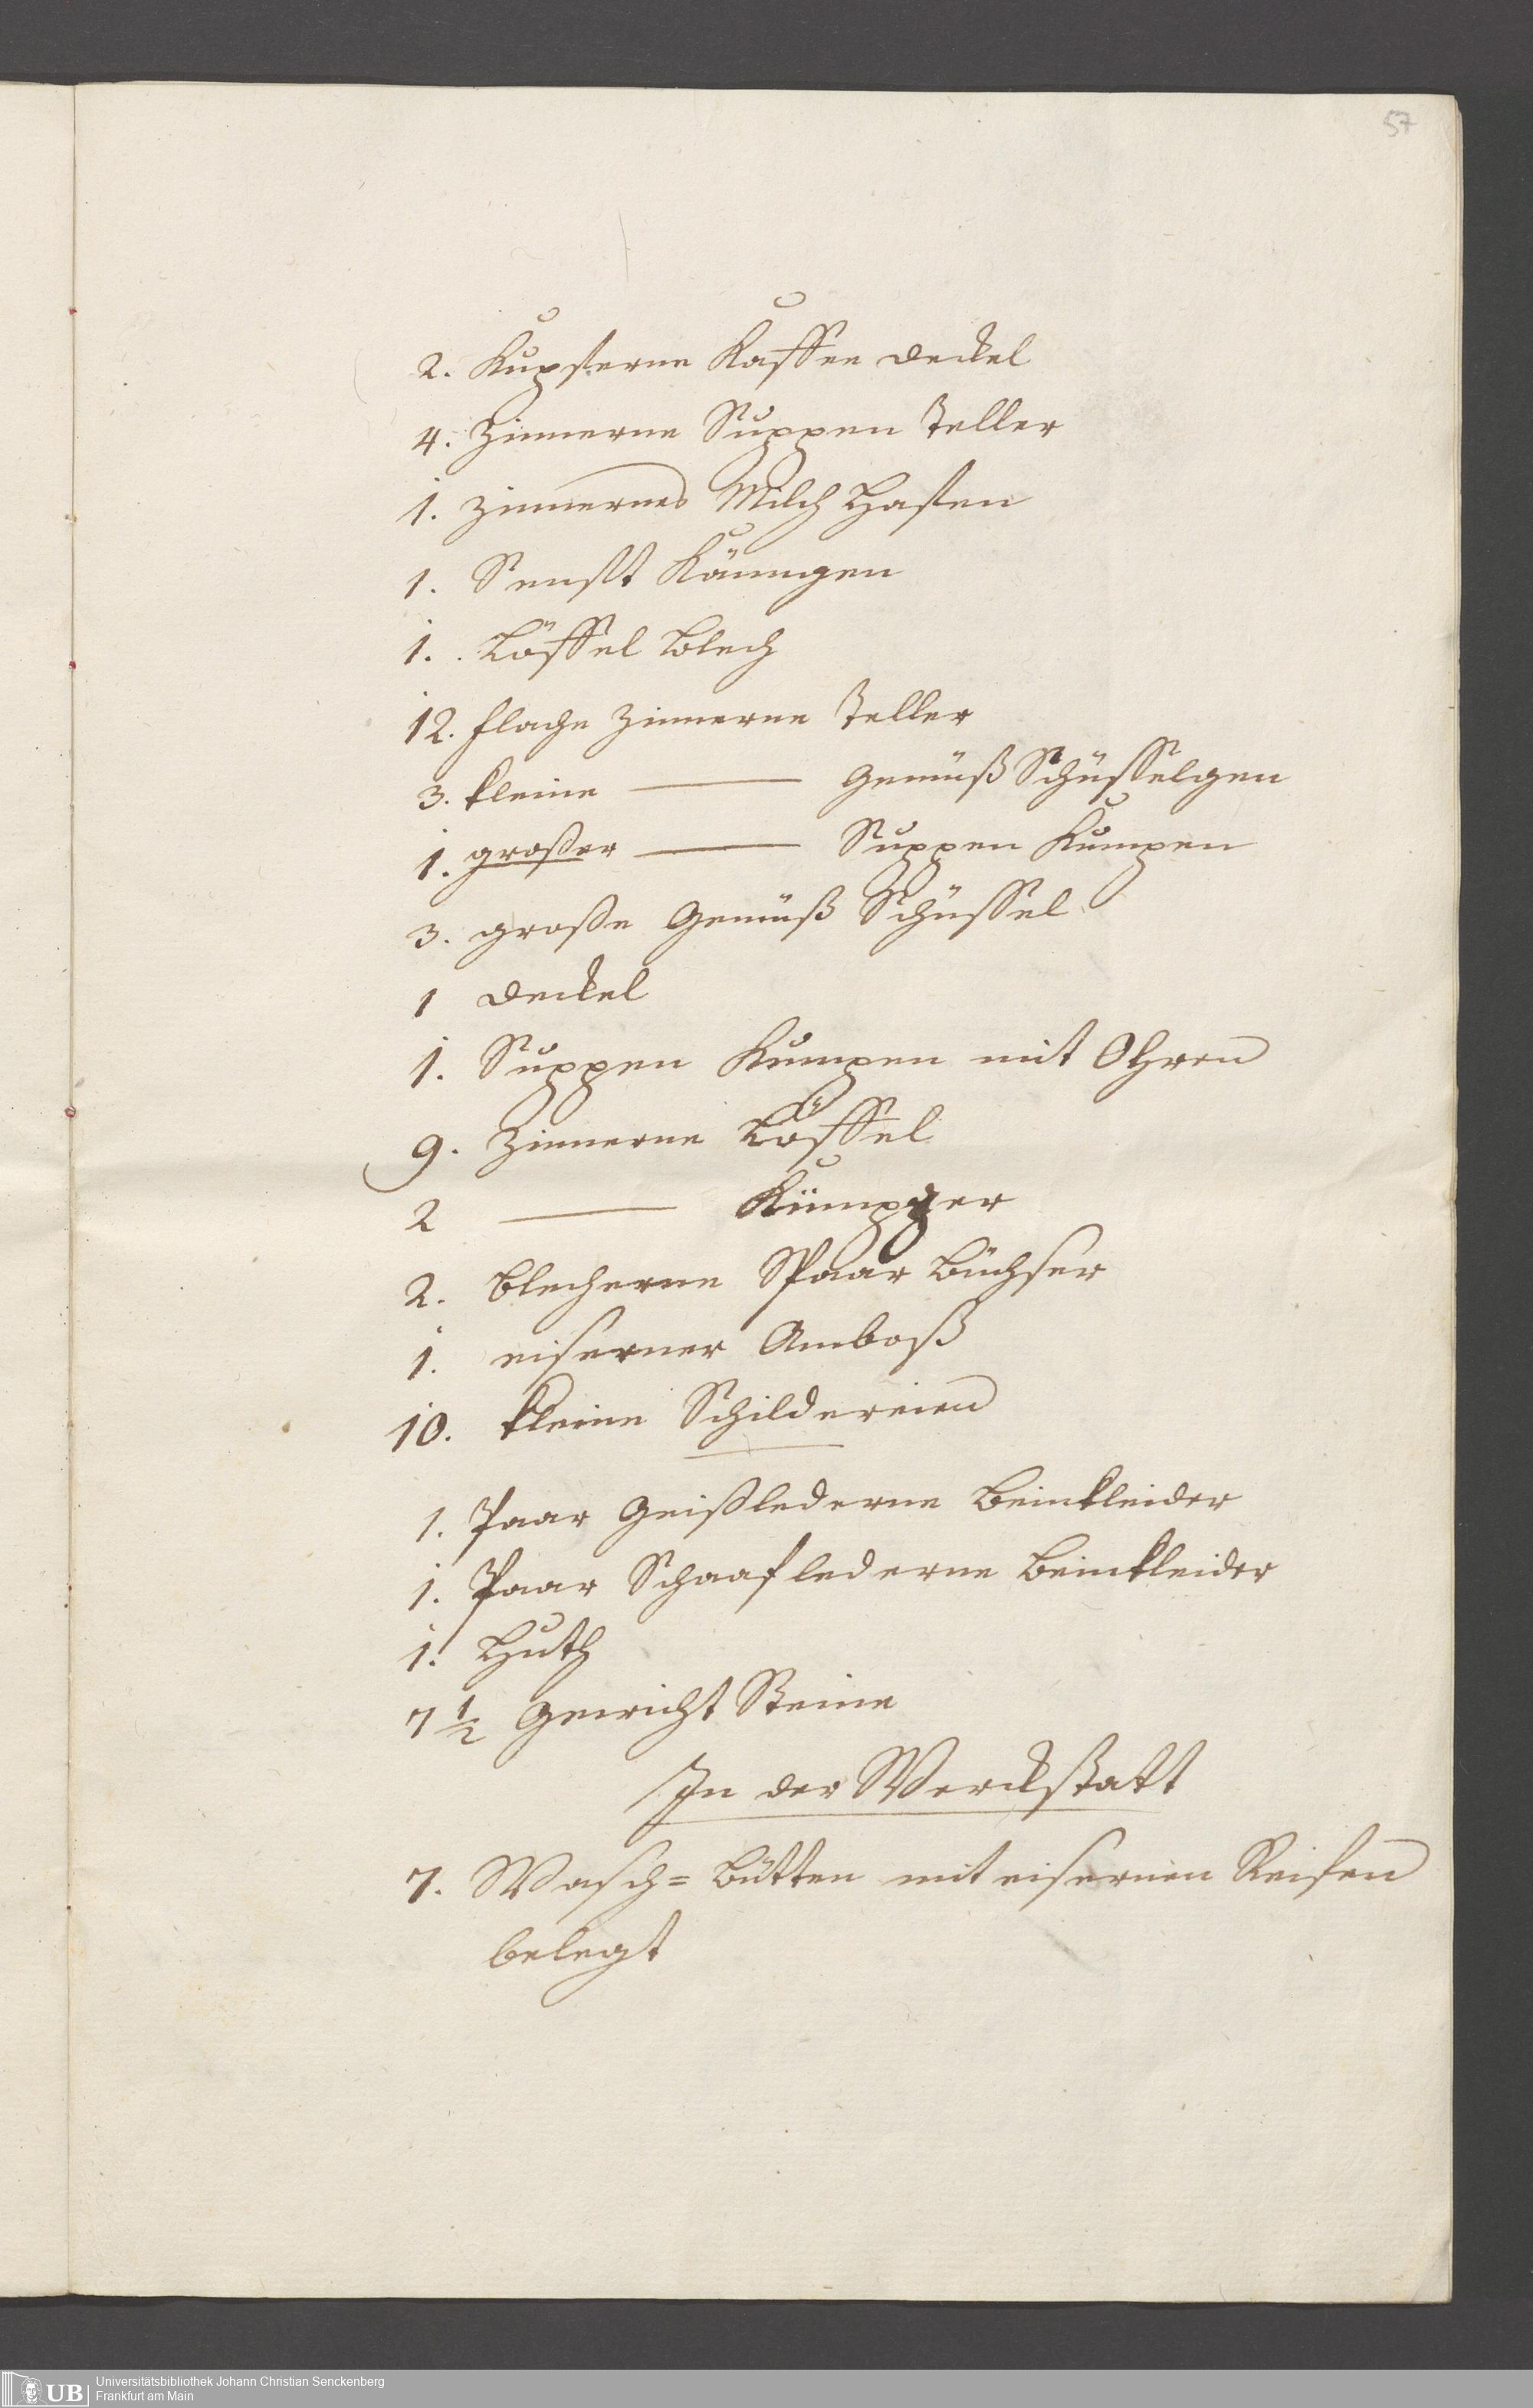 57
2. Kupferne Kaffee deckel
4. Zinnerne Suppen Teller
1. zinnernes Milch Hafen
1. Senfft Känngen
1. Löffel Blech
12. flache zinnerne Teller
3. kleine ——— Gemüß Schüsselgen
1. großer ——— Suppen Kumpen
3. große Gemüß Schüssel
1 deckel
1. Suppen Kumpen mit Ohren
9. Zinnerne Löffel
2 ——— Kümpger
2. blecherne Spaar Büchser
1. eiserner Amboß
10. kleine Schildereien
1. Paar Geißlederne Beinkleider
1. Paar Schaaflederne Beinkleider
1. Huth
7 1/2 Gewicht Steine
In der Werckstatt
7. Wasch= Bütten mit eisernen Reifen
belegt
UB
Universitätsbibliothek Johann Christian Senckenberg
Frankfurt am Main